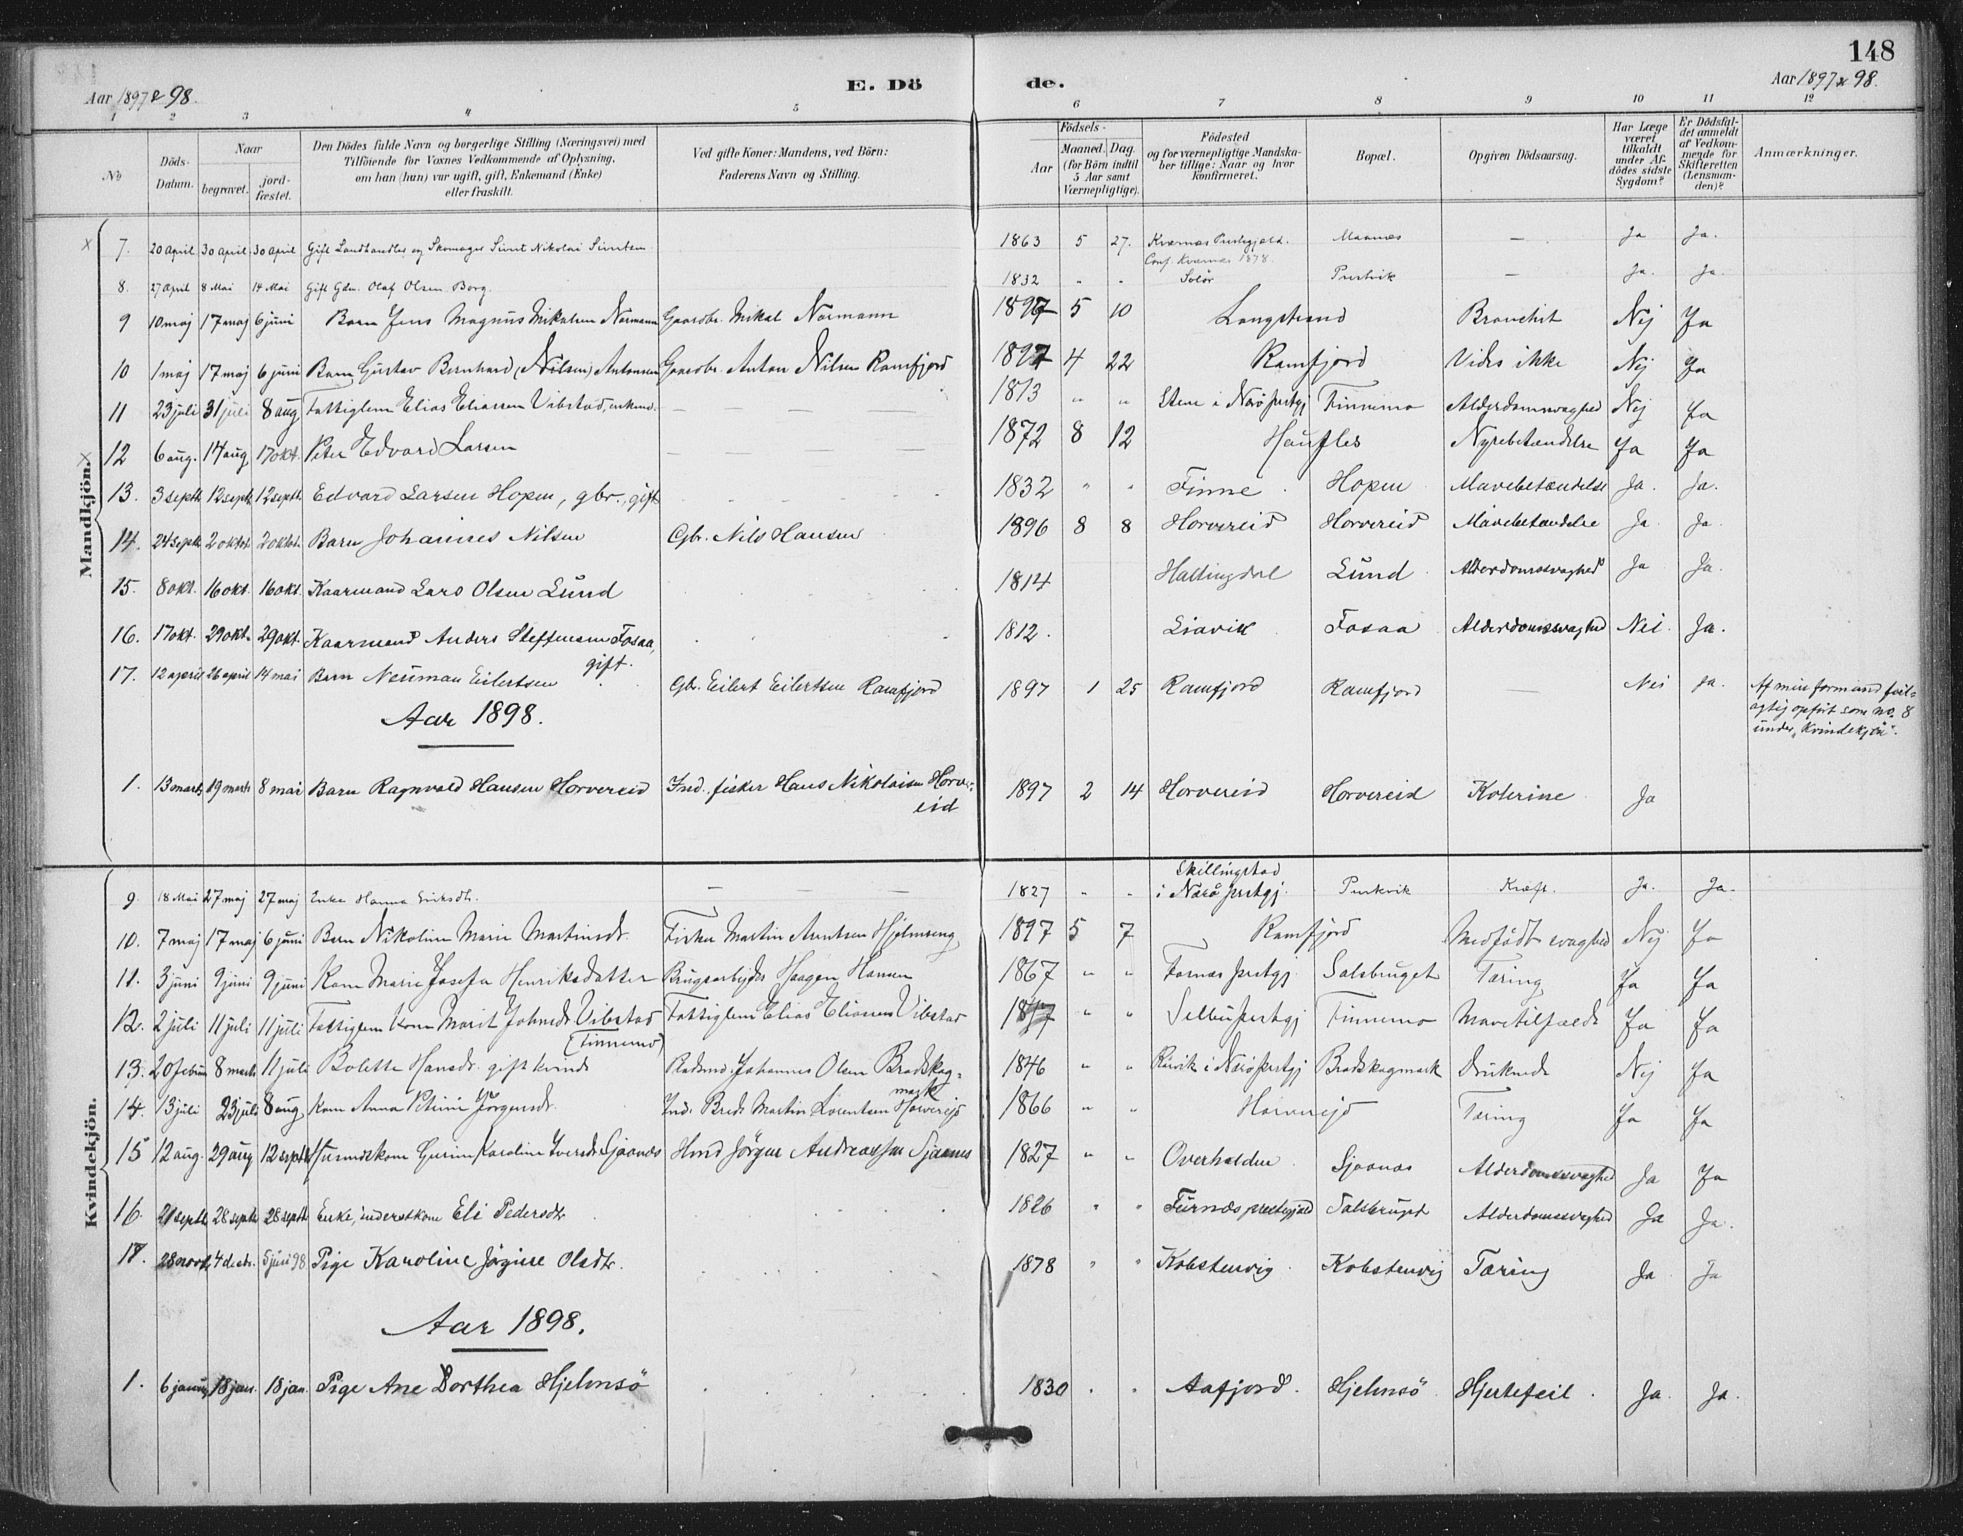 148
E. Dö de.
Aar 1897 & 98.
Aar 1897 & 98.
1 2 3 4 5 6 7 8 9 10 11 12
No
Döds-Datum.
Naar
begravet.
jord-fæstet.
Den Dödes fulde Navn og borgerlige Stilling (Næringsvei) med
Tilföiende for Voxnes Vedkommende af Oplysning,
om han (hun) var ugift, gift, Enkemand (Enke)
eller fraskilt.
Ved gifte Koner: Mandens, ved Börn:
Faderens Navn og Stilling.
Födsels-
Aar
Maaned. Dag.
(for Börn indtil
5 Aar samt
Værnepligtige).
Födested
og for værnepligtige Mandska-
ber tillige: Naar og hvor
Konfirmeret.
Bopæl.
Opgiven Dödsaarsag.
Har Læge
været
tilkaldt
under Af-
dödes sidste
Sygdom?
Er Dödsfal-
det anmeldt
af Vedkom-
mende for
Skifteretten
(Lensman-
den)?
Anmærkninger.
Mandkjön.
7. 20 April 30 April 30 April Gift Landhandler og Skomager Simt Nikolai Simtsen 1863 5 27. Kværnæs Prestegjeld. Maanæs — Ja Ja.
Conf. Kværnæs 1878.
8. 27 April 8 Mai 14 Mai Gift Gdm. Olaf Olsen Borg. 1832 " " Solör — Ja. Ja.
9 10 maj 17 maj 6 juni Barn Jens Magnus Mikalsen Normann Gaardbr. Mikal Normann 1897 5 10 Langstrand Bronchit Nej Ja
10 1 maj 17 maj 6 juni Barn Gustav Bernhard (Nilsen) Antonsen Gaardbr. Anton Nilsen Ramfjord 1897 4 22 Ramfjord Vides ikke Nej Ja
11 23 juli 31 juli 8 aug Fattiglem Elias Eliassen Vibstad, enkem. — — — — 1813 " " i Narö prstgj Finnemo Alderdomsvaghed Nej Ja
12 6 aug. 14 aug 17 okt. Peter Edvard Larsen — — — — 1872 8 12 Haufles Nyrebetændelse Ja Ja
13. 3 septb 12 septb 12 septb. Edvard Larsen Hopen, gbr., gift 1832 " " Finne Hopen Mavebetændelse Ja. Ja.
14. 24 septb 2 oktob. 2 oktob. Barn Johannes Nilsen Gbr. Nils Hansen 1896 8 8 Horvereid Horvereid Mavebetændelse Ja Ja.
15. 8 okt. 16 okt. 16 okt. Kaarmand Lars Olsen Lund 1814 Hallingdal Lund Alderdomssvaghed Ja Ja.
16. 17 okt. 29 okt. 29 okt. Kaarmand Anders Steffensen Fosaa, 1812. Liavik Fosaa Alderdomssvaghed Nei. Ja.
gift.
17. 12 april 26 april 14 mai Barn Neuman Eilertsen Gbr. Eilert Eilertsen Ramfjord 1897 1 25 Ramfjord Ramfjord — Nei Ja. Af min formand feil-
agtig opfört som no. 8
under „Kvindekjön".
Aar 1898.
1. 13 marts 19 marts 8 mai Barn Ragnvald Hansen Horvereid Ind., fisker Hans Nikolaisen Horve-
eid 1897 2 14 Horvereid Horvereid Kolerine Ja
Kvindekjön.
Skillingstad
9. 18 Mai 27 maj 27 maj Enke Hanna Eriksdtr. — — — 1827 " " i Narö prstgj. Kræft. Ja. Ja.
10. 7 maj 17 maj 6 juni Barn Nikoline Marie Martinsdr. Fisker Martin Arntsen Hjelmseng 1897 5 7 Ramfjord Medfödt svaghed Nej Ja
11. 3 juni 9 juni 9 juni Kone Marie Josefa Henriksdatter Brugsarbejder Haagen Hansen 1867 " " Fosnæs prstgj Salsbruget Tæring Ja Ja
12. 2 juli 11 juli 11 juli Fattiglem Kone Marit Johnsdr Vibstad Fattiglem Elias Eliassen Vibstad " " Selbu prstgj Finnemo Mavetilfælde Ja Ja
(Finnemo)
13. 20 februar 8 marts 11 juli Bolette Hansdr. gift kvinde Pladsmd. Johannes Olsen Bradskag-
mark 1846 " " Rörvik i Narö prstgj Bradskagmark Druknede Nej Ja
14. 13 juli 23 juli 8 aug Kone Anna Petrine Jörgensdr. Ind. Brede Martin Lorentsen Horverejd 1866 " " Horverejd Tæring Ja Ja
15 12 aug. 29 aug 12 septb Husmdskone Gurine Karoline Iversdr Sjaanæs Hmd Jörgen Andreassen Sjaanæs 1827 " " Overhalden Sjaanæs Alderdomssvaghed Ja Ja
16. 21 septb 28 septb 28 septb Enke, inderstkone Eli Pedersdtr 1826 " " Fosnæs prestegjeld Salsbruget Alderdomssvaghed Ja Ja.
17. 28 novb. 4 decbr. 5 juni 98 Pige Karoline Jörgine Olsdtr. 1878 " " Kobstenvig Kobstenvig Tæring Ja Ja
Aar 1898.
1. 6 januar 18 jan. 18 jan. Pige Ane Dorthea Hjelmsö 1830 " " Aafjord. Hjelmsö Hjertefeil Ja. Ja.